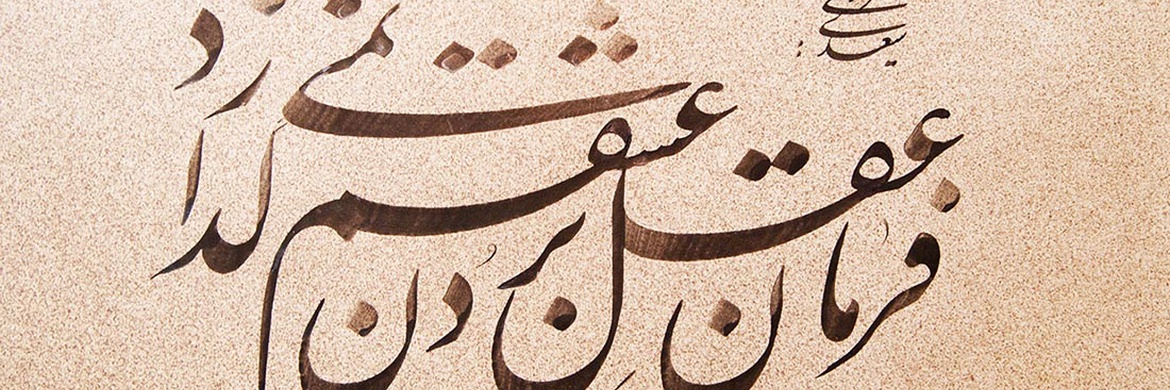 سعدی
فرمان عقل بردن عشقم نمی گذارد